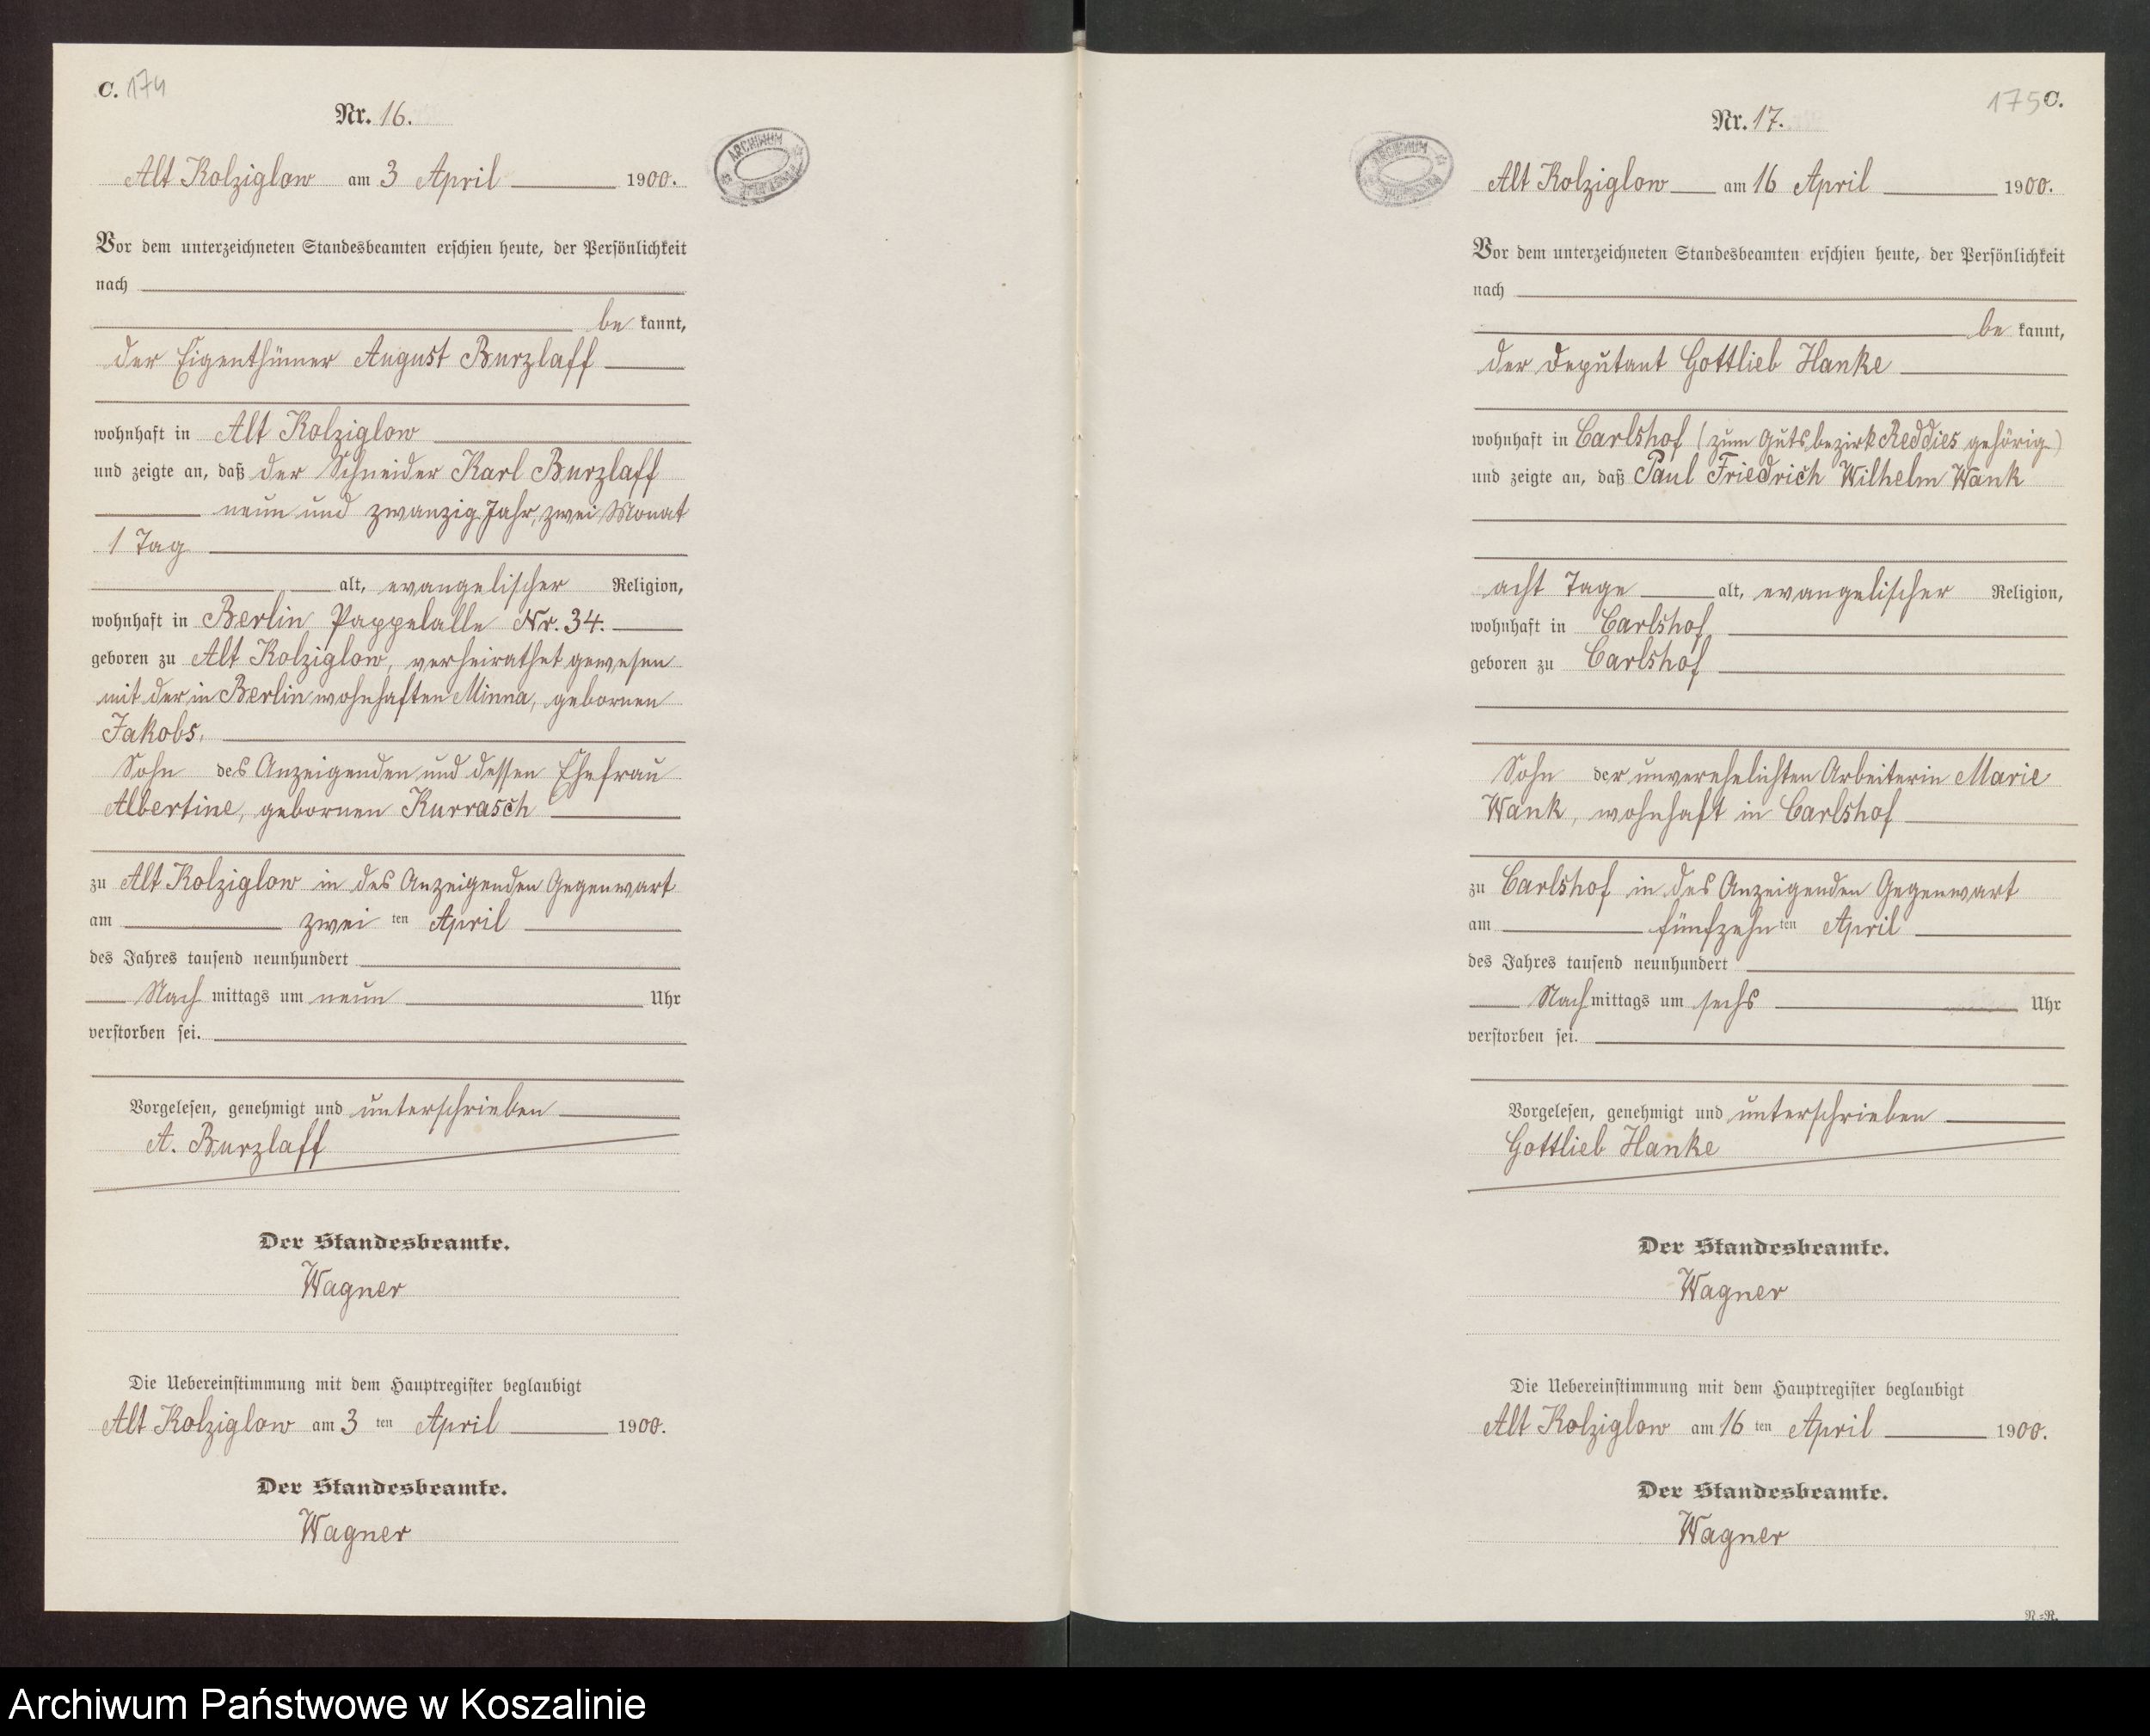 C. 174
Nr. 16.
Alt Kolziglow am 3 April 1900.
ARCHIWUM
Vor dem unterzeichneten Standesbeamten erschien heute, der Persönlichkeit
nach
be kannt,
der Eigenthümer August Burzlaff
wohnhaft in Alt Kolziglow
und zeigte an, daß der Schneider Karl Burzlaff
neun und zwanzig Jahr, zwei Monat
1 Tag
alt, evangelischer Religion,
wohnhaft in Berlin Pappelalle Nr. 34.
geboren zu Alt Kolziglow, verheirathet gewesen
mit der in Berlin wohnhaften Minna, gebornen
Jakobs.
Sohn des Anzeigenden und dessen Ehefrau
Albertine, gebornen Kurrasch
zu Alt Kolziglow in des Anzeigenden Gegenwart
am zwei ten April
des Jahres tausend neunhundert
Nach mittags um neun Uhr
verstorben sei.
Vorgelesen, genehmigt und unterschrieben
A. Burzlaff
Der Standesbeamte.
Wagner
Die Uebereinstimmung mit dem Hauptregister beglaubigt
Alt Kolziglow am 3 ten April 1900.
Der Standesbeamte.
Wagner
175 C.
Nr. 17.
ARCHIWUM
Alt Kolziglow am 16 April 1900.
Vor dem unterzeichneten Standesbeamten erschien heute, der Persönlichkeit
nach
be kannt,
der Deputant Gottlieb Hanke
wohnhaft in Carlshof (zum Gutsbezirk Reddies gehörig)
und zeigte an, daß Paul Friedrich Wilhelm Wank
acht Tage alt, evangelischer Religion,
wohnhaft in Carlshof
geboren zu Carlshof
Sohn der unverehelichten Arbeiterin Marie
Wank, wohnhaft in Carlshof
zu Carlshof in des Anzeigenden Gegenwart
am fünfzehn ten April
des Jahres tausend neunhundert
Nach mittags um sechs Uhr
verstorben sei.
Vorgelesen, genehmigt und unterschrieben
Gottlieb Hanke
Der Standesbeamte.
Wagner
Die Uebereinstimmung mit dem Hauptregister beglaubigt
Alt Kolziglow am 16 ten April 1900.
Der Standesbeamte.
Wagner
N.=R.
Archiwum Państwowe w Koszalinie